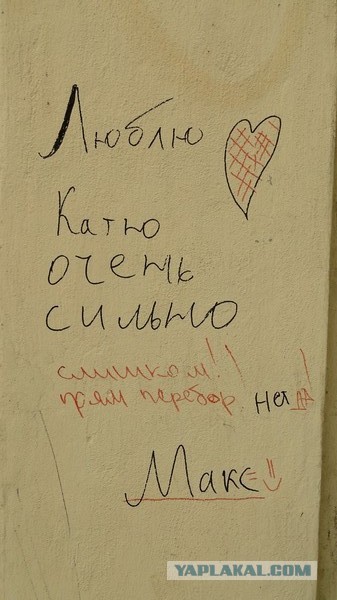 Люблю
Катю
очень
сильно
слишком!!
прям перебор. нет ДА!
Макс=)
YAPLAKAL.COM